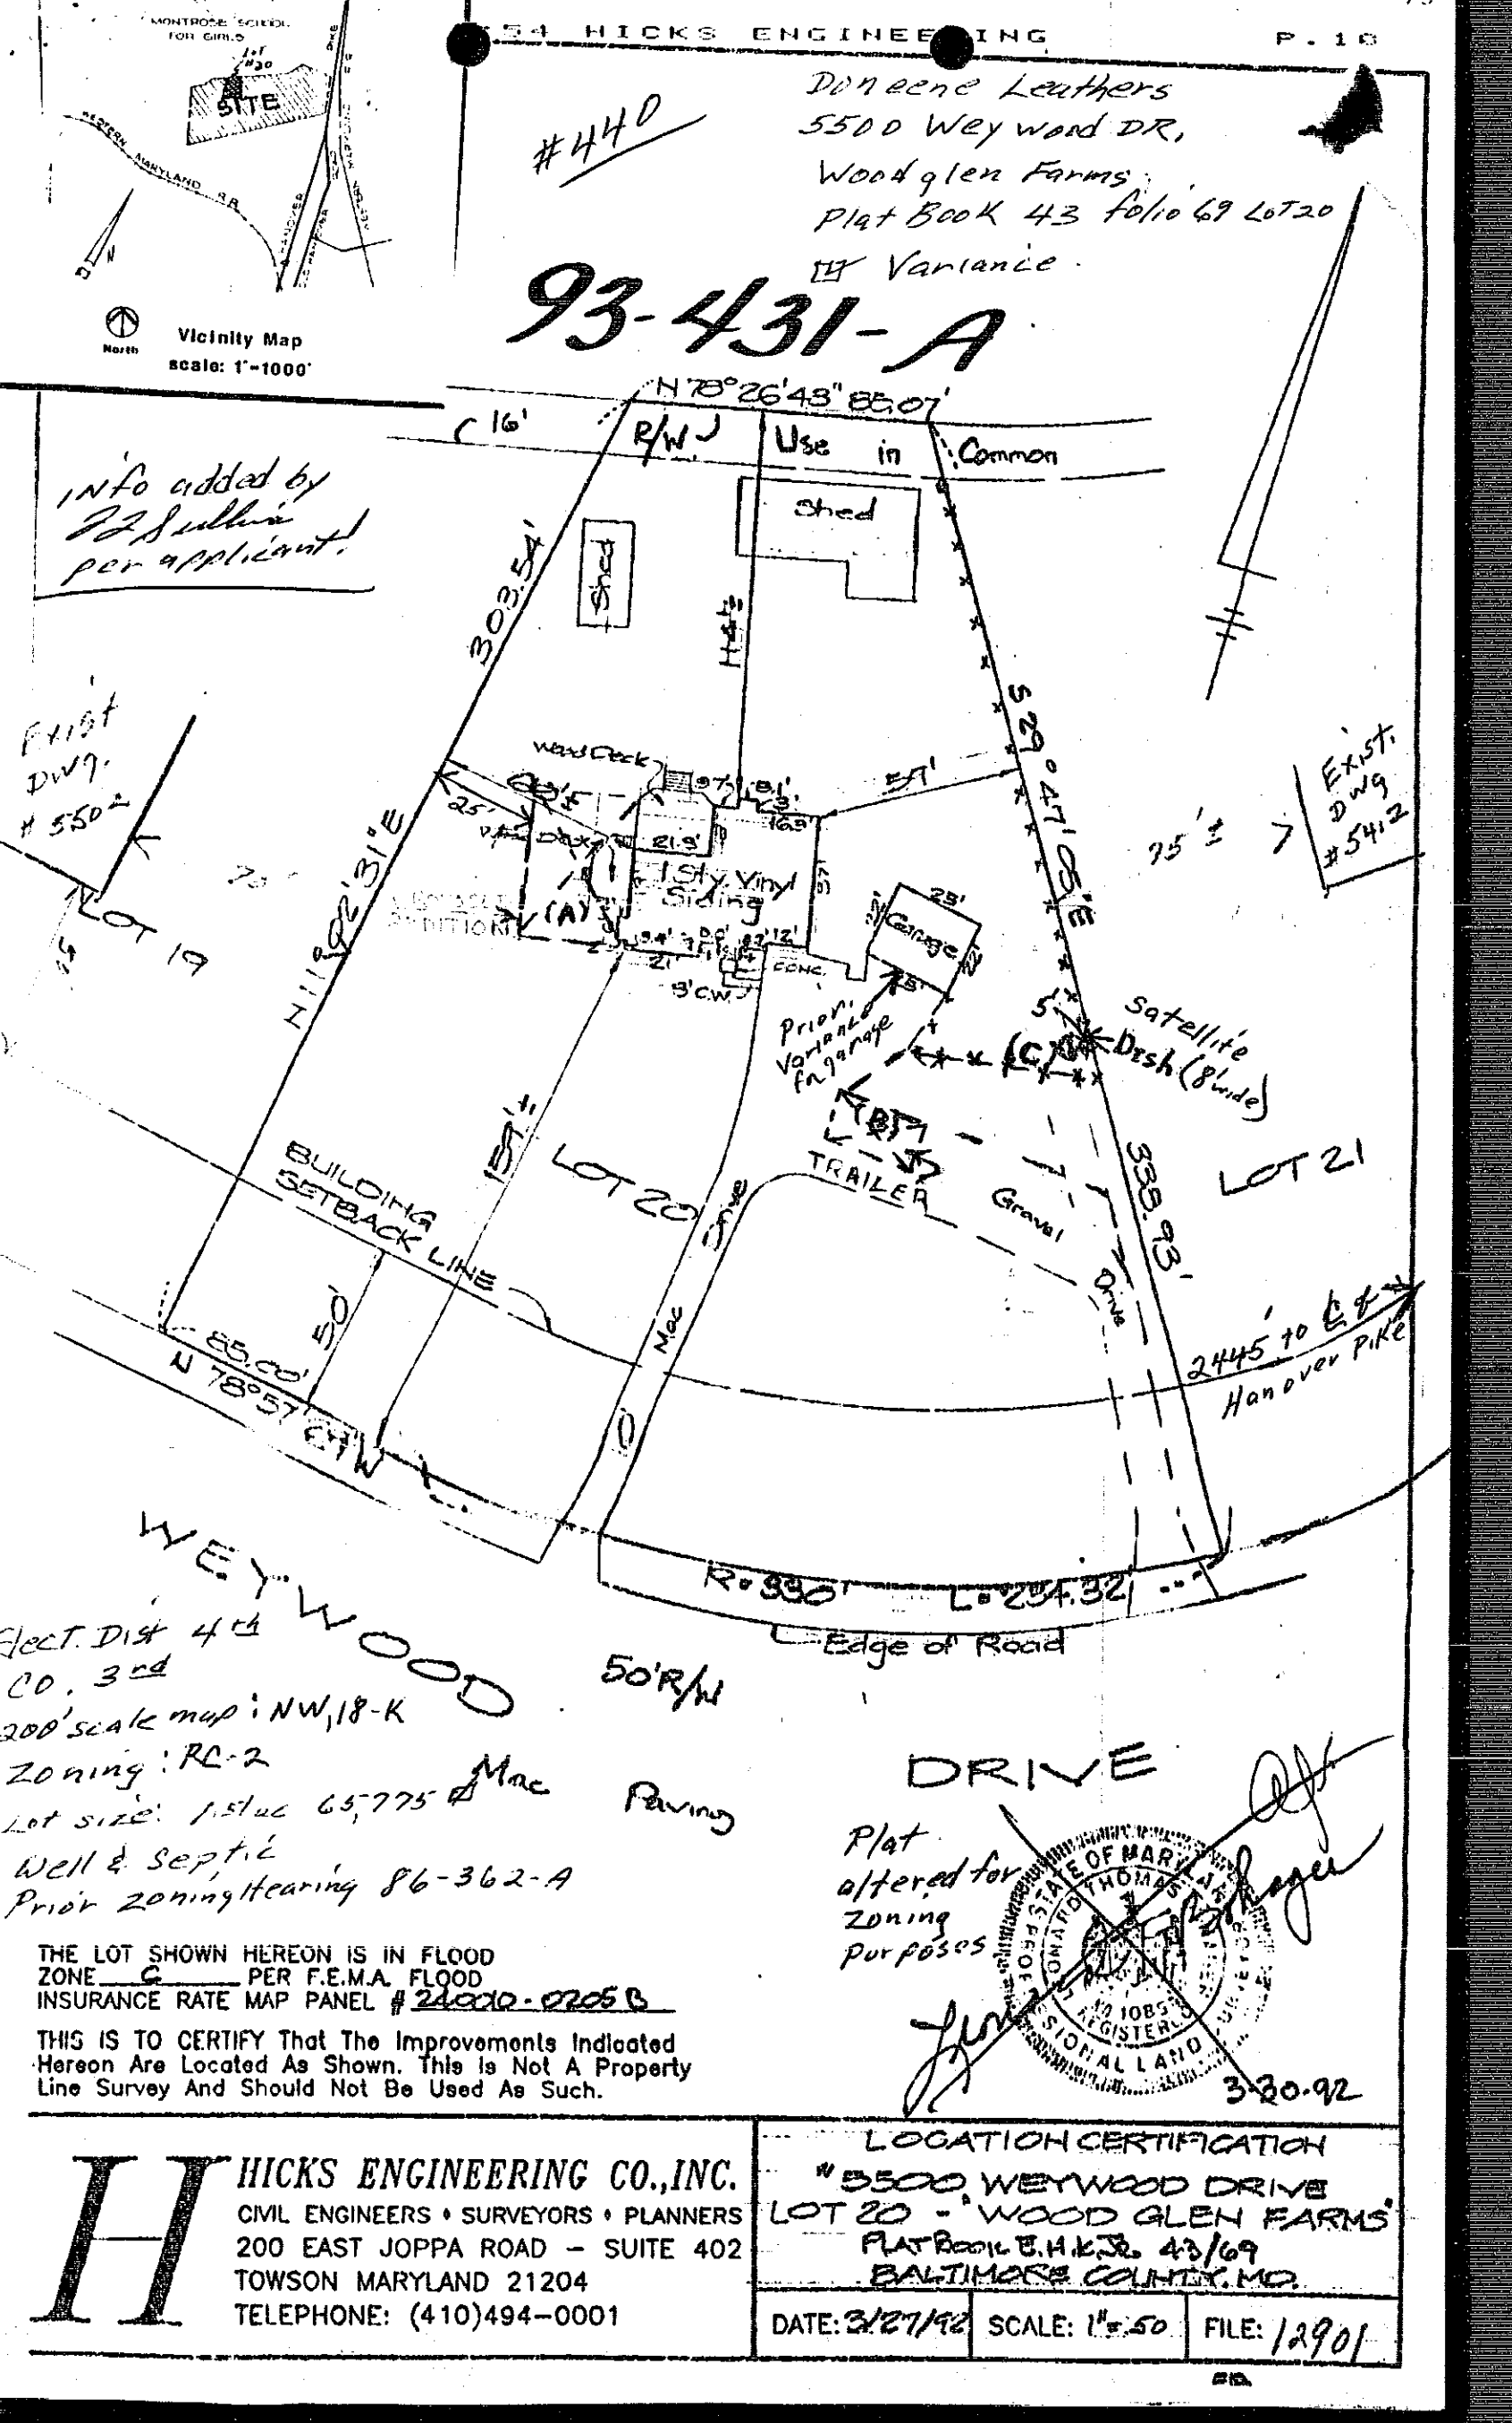 MONTROSE SCHOOL
FOR GIRLS
LOT
#20
SITE
WESTERN MARYLAND R.R.
HANOVER
PIKE
N
North
Vicinity Map
scale: 1"-1000'
54 HICKS ENGINEERING
P.10
#440
Doneene Leathers
5500 Weywood DR,
Woodglen Farms
Plat Book 43 folio 69 LOT 20
Variance
93-431-A
N 78°26'43" 85.07'
16'
R/W
Use in Common
INfo added by
per applicant!
Shed
Shed
303.54'
S 29°47'05"E
Exist
Dwg.
# 5502
LOT 19
Wood Deck
25'
57'
21.9'
16.3'
1 Sty. Vinyl
Siding
37'
(A)
ADDITION
21'
12'
CONC.
3' C.W.
23'
22'
Garage
22'
Prior
Variance
for garage
75'±
Exist.
Dwg
#5412
5'
(C)
Satellite
Dish (8' wide)
(B)
TRAILER
Gravel
Drive
338.93'
LOT 21
157'±
LOT 20
BUILDING
SETBACK LINE
50'
Mac
Drive
85.00'
N 78°57'
W
2445' to ₵ of
Hanover Pike
R=330'
L=254.32'
Edge of Road
WEYWOOD
50' R/W
DRIVE
Elect. Dist 4th
CO. 3rd
200' scale map: NW,18-K
Zoning: RC-2
Lot size: 1.51ac 65,775
Well & Septic
Prior zoning Hearing 86-362-A
Mac Paving
Plat
altered for
zoning
purposes
STATE OF MARYLAND
THOMAS
REGISTERED
PROFESSIONAL LAND SURVEYOR
3-30-92
THE LOT SHOWN HEREON IS IN FLOOD
ZONE C PER F.E.M.A. FLOOD
INSURANCE RATE MAP PANEL # 240010-0205 B
THIS IS TO CERTIFY That The Improvements Indicated
Hereon Are Located As Shown. This Is Not A Property
Line Survey And Should Not Be Used As Such.
H
HICKS ENGINEERING CO.,INC.
CIVIL ENGINEERS • SURVEYORS • PLANNERS
200 EAST JOPPA ROAD – SUITE 402
TOWSON MARYLAND 21204
TELEPHONE: (410)494-0001
LOCATION CERTIFICATION
# 5500 WEYWOOD DRIVE
LOT 20 - "WOOD GLEN FARMS"
PLAT BOOK E.H.K.JR. 43/69
BALTIMORE COUNTY, MD.
DATE: 3/27/92
SCALE: 1"=50
FILE: 12901